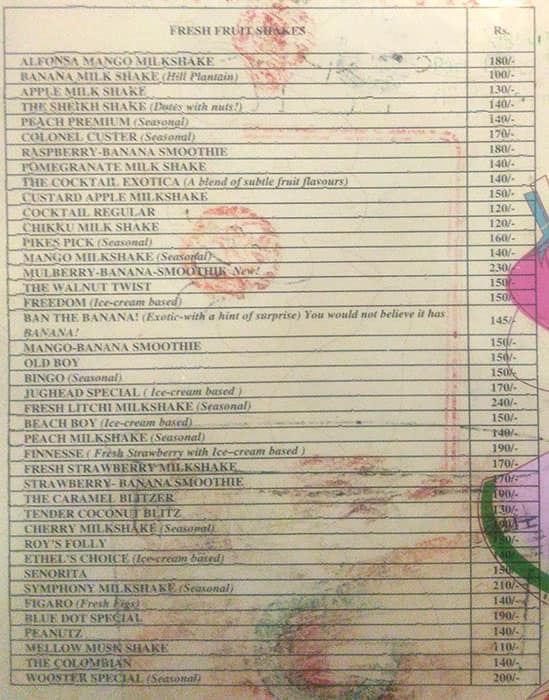 FRESH FRUIT SHAKES Rs.
ALFONSA MANGO MILKSHAKE 180/-
BANANA MILK SHAKE (Hill Plantain) 100/-
APPLE MILK SHAKE 130/-
THE SHEIKH SHAKE (Dates with nuts!) 140/-
PEACH PREMIUM (Seasonal) 140/-
COLONEL CUSTER (Seasonal) 170/-
RASPBERRY-BANANA SMOOTHIE 180/-
POMEGRANATE MILK SHAKE 140/-
THE COCKTAIL EXOTICA (A blend of subtle fruit flavours) 140/-
CUSTARD APPLE MILKSHAKE 150/-
COCKTAIL REGULAR 120/-
CHIKKU MILK SHAKE 120/-
PIKES PICK (Seasonal) 160/-
MANGO MILKSHAKE (Seasonal) 140/-
MULBERRY-BANANA-SMOOTHIE New! 230/-
THE WALNUT TWIST 150/-
FREEDOM (Ice-cream based) 150/-
BAN THE BANANA! (Exotic-with a hint of surprise) You would not believe it has 145/-
BANANA!
MANGO-BANANA SMOOTHIE 150/-
OLD BOY 150/-
BINGO (Seasonal) 150/-
JUGHEAD SPECIAL ( Ice-cream based ) 170/-
FRESH LITCHI MILKSHAKE (Seasonal) 240/-
BEACH BOY (Ice-cream based) 150/-
PEACH MILKSHAKE (Seasonal) 140/-
FINNESSE ( Fresh Strawberry with Ice-cream based ) 190/-
FRESH STRAWBERRY MILKSHAKE 170/-
STRAWBERRY- BANANA SMOOTHIE 170/-
THE CARAMEL BLITZER 190/-
TENDER COCONUT BLITZ 130/-
CHERRY MILKSHAKE (Seasonal)
ROY'S FOLLY 150/-
ETHEL'S CHOICE (Ice-cream based) 140/-
SENORITA 150/-
SYMPHONY MILKSHAKE (Seasonal) 210/-
FIGARO (Fresh Figs) 140/-
BLUE DOT SPECIAL 190/-
PEANUTZ 140/-
MELLOW MUSK SHAKE 110/-
THE COLOMBIAN 140/-
WOOSTER SPECIAL (Seasonal) 200/-